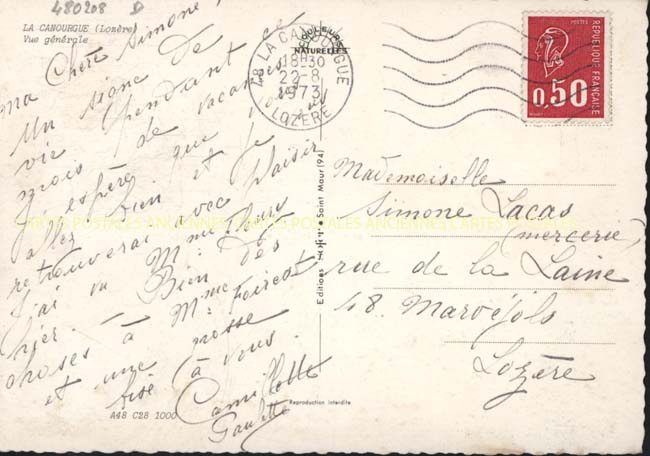 480208 D
LA CANOURGUE (Lozère)
Vue générale
ma Chère Simone !
Un signe de
vie pendant ce
mois de vacances
J'espère que vous
allez bien et je
retrouverai avec plaisir
J'ai vu Mme
hier. Bien des
choses à Mme
et une grosse
bise à vous.
Camillette
A48 C28 1000
COULEURS
NATURELLES
48 LA CANOURGUE
18H30
22-8
1973
LOZERE
POSTES
0,50
REPUBLIQUE FRANÇAISE
Editions Saint Maur (94)
Reproduction interdite
Mademoiselle
Simone Lacas
(mercerie)
rue de la Laine
48. Marvéjols
Lozère
CARTES POSTALES ANCIENNES CARTES POSTALES ANCIENNES